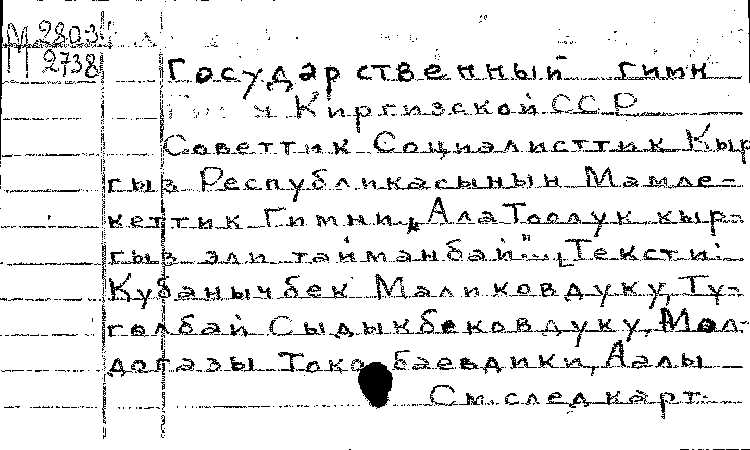 М 2803
2738
Государственный гимн
Киргизской ССР
Советтик Социалисттик Кыр
гыз Республикасынын Мамле-
кеттик Гимни. „Ала Тоолук кыр-
гыз эли тайманбай"... Тексти:
Кубанычбек Маликовдуку, Ту-
голбай Сыдыкбековдуку, Мол-
догазы Токобаевдики, Аалы
См. след карт.